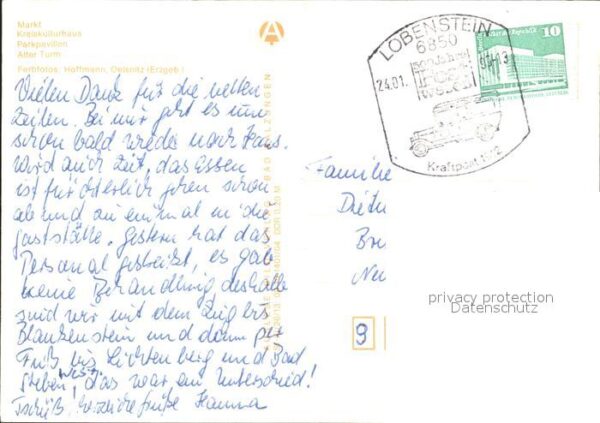 Markt
Kreiskulturhaus
Parkpavillon
Alter Turm
Farbfotos: Hoffmann, Oelsnitz (Erzgeb.)
Vielen Dank für die netten
Zeilen. Bei mir geht es nun
schon bald wieder nach Haus.
Wird auch Zeit, das Essen
ist fürchterlich, gehen schon
ab und zu einmal in die
Gaststätte. Gestern hat das
Personal gestreikt, es gab
keine Behandlung deshalb
sind wir mit dem Zug bis
Blankenstein und dann per
Fuß bis Lichtenberg und Bad
Steben, West, das war ein Unterschied!
Tschüß, herzliche Grüße Hanna
LOBENSTEIN
6850
24.01.
Kraftpost
10
Familie
Diet
Bre
Neu
9
privacy protection
Datenschutz